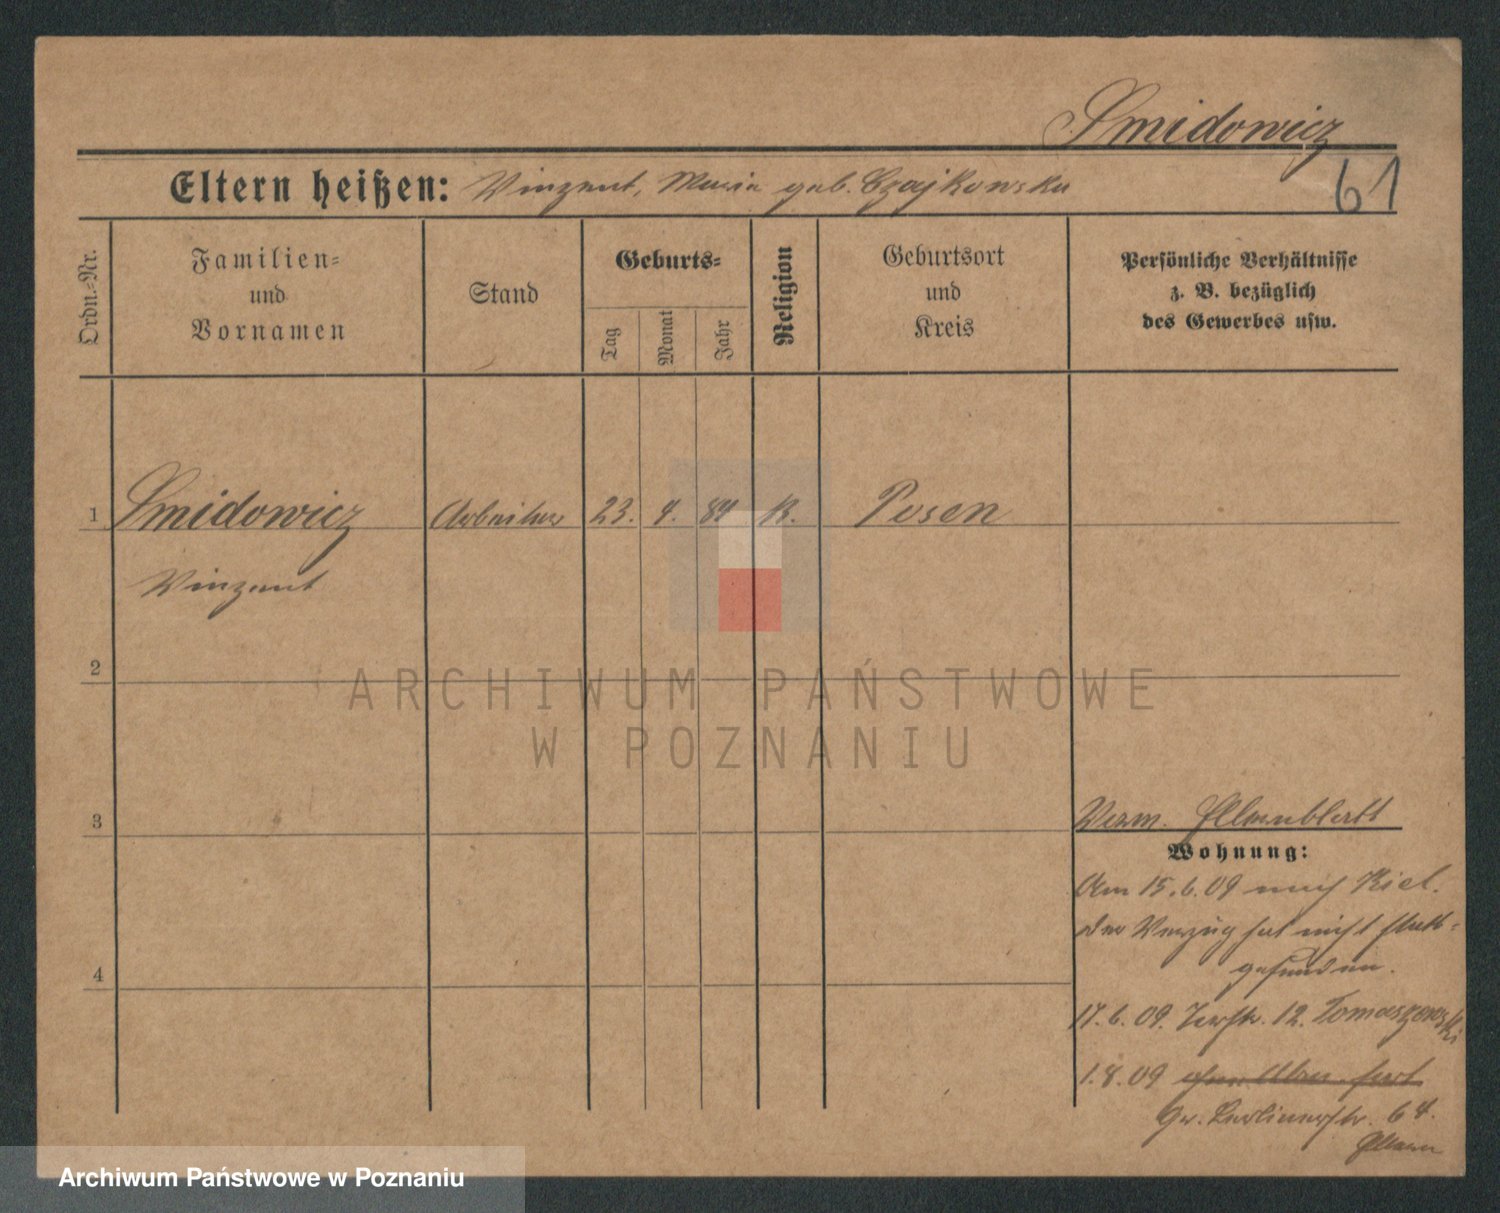 Smidowicz
61
Eltern heißen: Vinzent, Maria geb. Czajkowska
Ordn.-Nr.
Familien-
und
Vornamen
Stand
Geburts-
Tag
Monat
Jahr
Religion
Geburtsort
und
Kreis
Persönliche Verhältnisse
z. B. bezüglich
des Gewerbes usw.
1 Smidowicz Arbeiter 23. 4. 84 K. Posen
Vinzent
2
ARCHIWUM PAŃSTWOWE
W POZNANIU
3
Verm. Elternblatt
Wohnung:
Am 15.6.09 nach Kiel.
Der Verzug hat nicht statt-
gefunden.
4
17.6.09. 12. Tomaszewski
1.8.09
Gr. Berlinerstr. 64.
Eltern
Archiwum Państwowe w Poznaniu